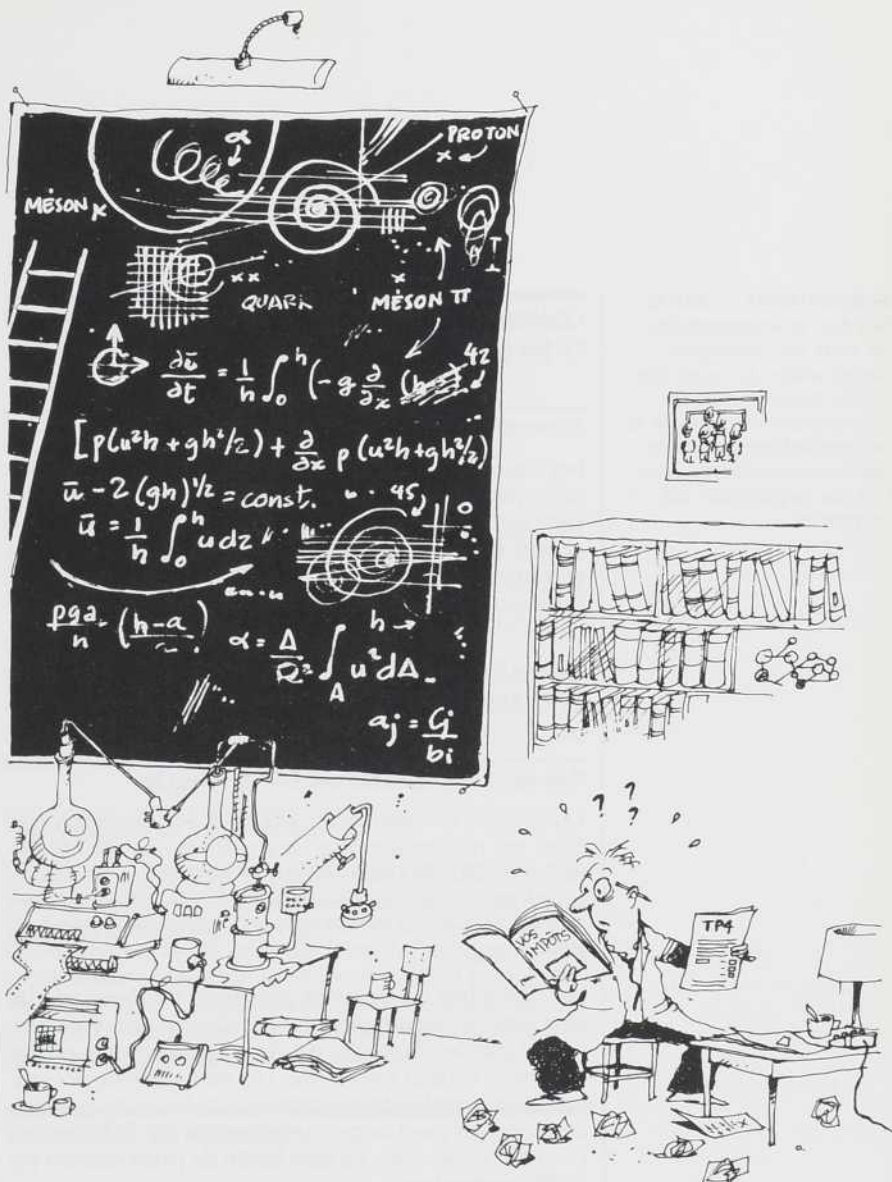 α
PROTON
MÉSON K
QUARK
MÉSON π
∂ū/∂t = 1/h ∫₀ʰ (-g ∂/∂x (h 42
[p(u²h + gh²/2) + ∂/∂x p(u²h + gh²/2)
ū - 2(gh)^1/2 = const. 45
ū = 1/h ∫₀ʰ u dz
h →
α = Δ/R² ∫_A u² dΔ
aj = Cj/bi
? ? ?
VOS
IMPÔTS
TP4